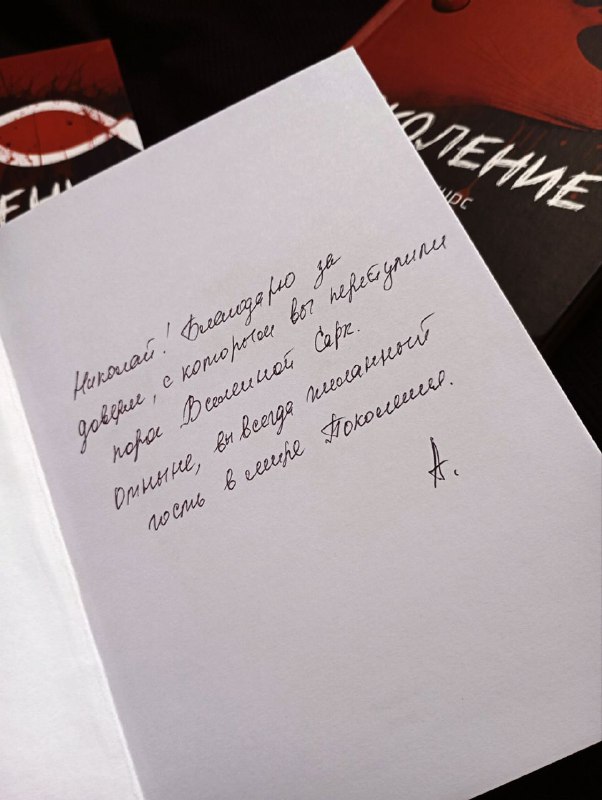 ЕНИ
КОЛЕНИЕ
Николай! Благодарю за
доверие, с которым вы переступили
порог Вселенной Сарк.
Отныне, вы всегда желанный
гость в мире Поколения.
А.